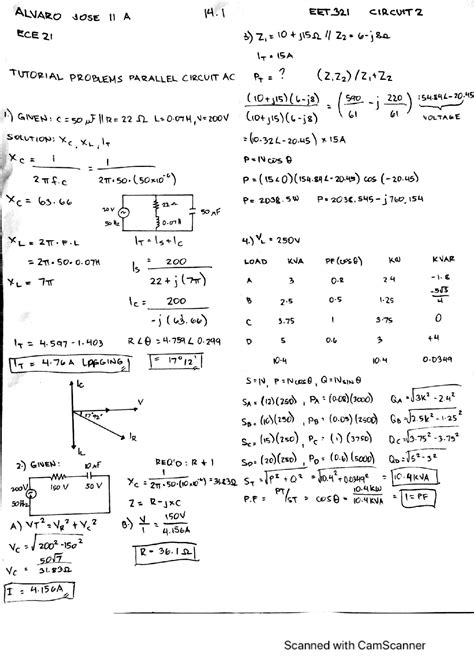 ALVARO JOSE II A
14.1
EET 321 CIRCUIT 2
ECE 21
TUTORIAL PROBLEMS PARALLEL CIRCUIT AC
1) GIVEN: C = 50 µF || R = 22 Ω L = 0.07H, V = 200V
SOLUTION: Xc, XL, IT
Xc = 1 / 2πf.c = 1 / 2π·50·(50x10⁻⁶)
Xc = 63.66
22 Ω
50 Hz
0.07H
50 µF
XL = 2π·F·L
= 2π·50·0.07H
XL = 7π
IT = Is + Ic
Is = 200 / 22 + j(7π)
Ic = 200 / -j(63.66)
IT = 4.597 - 1.403
R∠θ = 4.759∠0.299
IT = 4.76 A LAGGING
= 17°12'
Ic
V
17°12'
IR
IL
2) GIVEN:
10 µF
200V
50Hz
150 V
50 V
REQ'D: R & I
Z = R - jXc
A) VT² = VR² + Vc²
Vc = √200² - 150²
Vc = 50√7 / 31.83Ω
I = 4.156A
B) V/I = 150V / 4.156A
R = 36.1 Ω
3) Z₁ = 10 + j15Ω // Z₂ = 6 - j8Ω
IT = 15A
PT = ?
(Z₁Z₂) / Z₁+Z₂
(10+j15)(6-j8) / (10+j15)(6-j8) = (590/61 - j 220/61)
VOLTAGE
= (10.32∠-20.45) x 15A
P = IV cos θ
P = (15∠0)(154.84∠-20.45) cos (-20.45)
P = 2038.5W
P = 2038.545 - j760.154
4.) VL = 250V
LOAD KVA PF (COSθ) KW KVAR
A 3 0.8 2.4 -1.8
B 2.5 0.5 1.25
C 3.75 1 3.75 0
D 5 0.6 3 +4
10.4 10.4 0.0349
S = IV, P = IV cos θ, Q = IV sin θ
SA = (12)(250), PA = (0.8)(3000) QA = √3K² - 2.4²
SB = (10)(250), PB = (0.05)(2500) QB = √2.5K² - 1.25²
Sc = (15)(250), Pc = (1)(3750) Qc = √3.75² - 3.75²
SD = (20)(250), PD = (0.6)(5000) QD = √5² - 3²
ST = √P² + Q² = √10.4² + 0.0349² = 10.4KVA
P.F = PT/ST = cos θ = 10.4KW / 10.4KVA = 1 = PF
Scanned with CamScanner